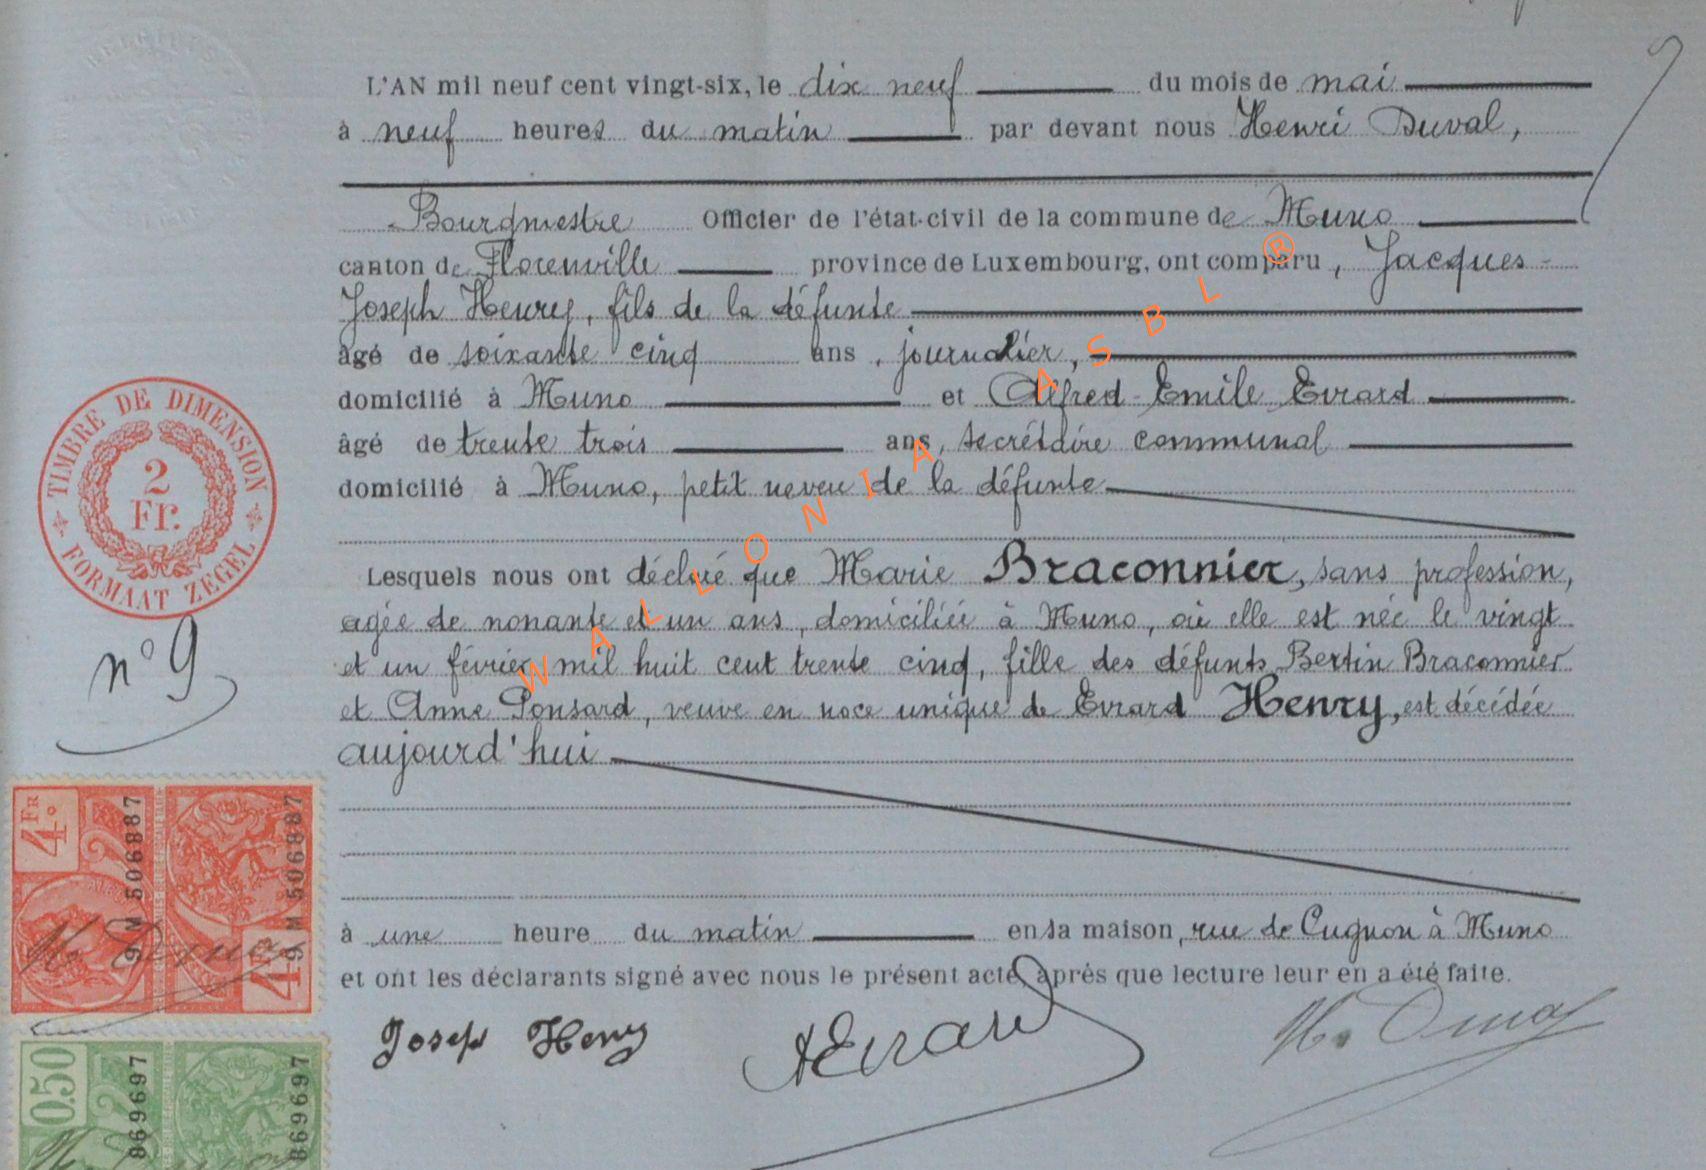 L'AN mil neuf cent vingt-six, le dix neuf du mois de mai
à neuf heures du matin par devant nous Henri Duval,
Bourgmestre Officier de l'état-civil de la commune de Muno
canton de Florenville province de Luxembourg, ont comparu, Jacques-
Joseph Henry, fils de la défunte
âgé de soixante cinq ans, journalier,
domicilié à Muno et Alfred-Emile Evrard
âgé de trente trois ans, secrétaire communal
domicilié à Muno, petit neveu de la défunte
Lesquels nous ont déclaré que Marie Braconnier, sans profession,
agée de nonante et un ans, domiciliée à Muno, où elle est née le vingt
et un février mil huit cent trente cinq, fille des défunts Bertin Braconnier
et Anne Ponsard, veuve en noce unique de Evrard Henry, est décédée
aujourd'hui
à une heure du matin en sa maison, rue de Cugnon à Muno
et ont les déclarants signé avec nous le présent acte, après que lecture leur en a été faite.
Josep Henry AEvrard H. Duval
TIMBRE DE DIMENSION
2
Fr.
FORMAAT ZEGEL
n° 9
4 FR
9 M 506887
9 M 506887
4
H. Duval
0.50
869697
869697
WALLONIA ASBL ®